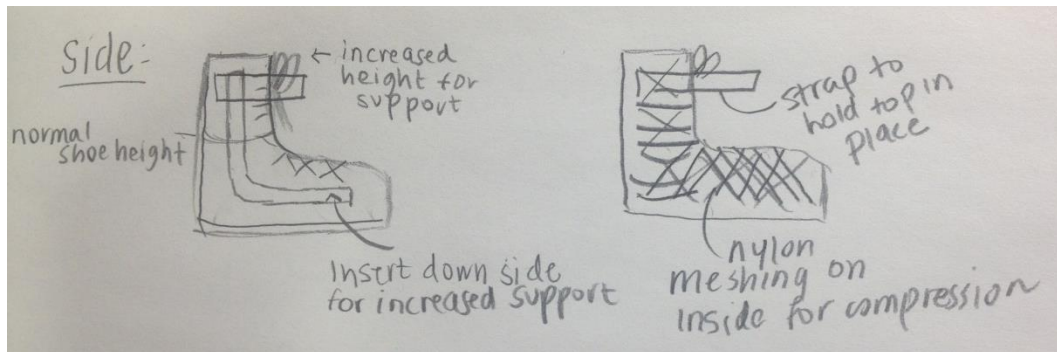 Side:
← increased
height for
support
normal
shoe height
Insert down side
for increased support
strap to
hold top in
place
nylon
meshing on
inside for compression